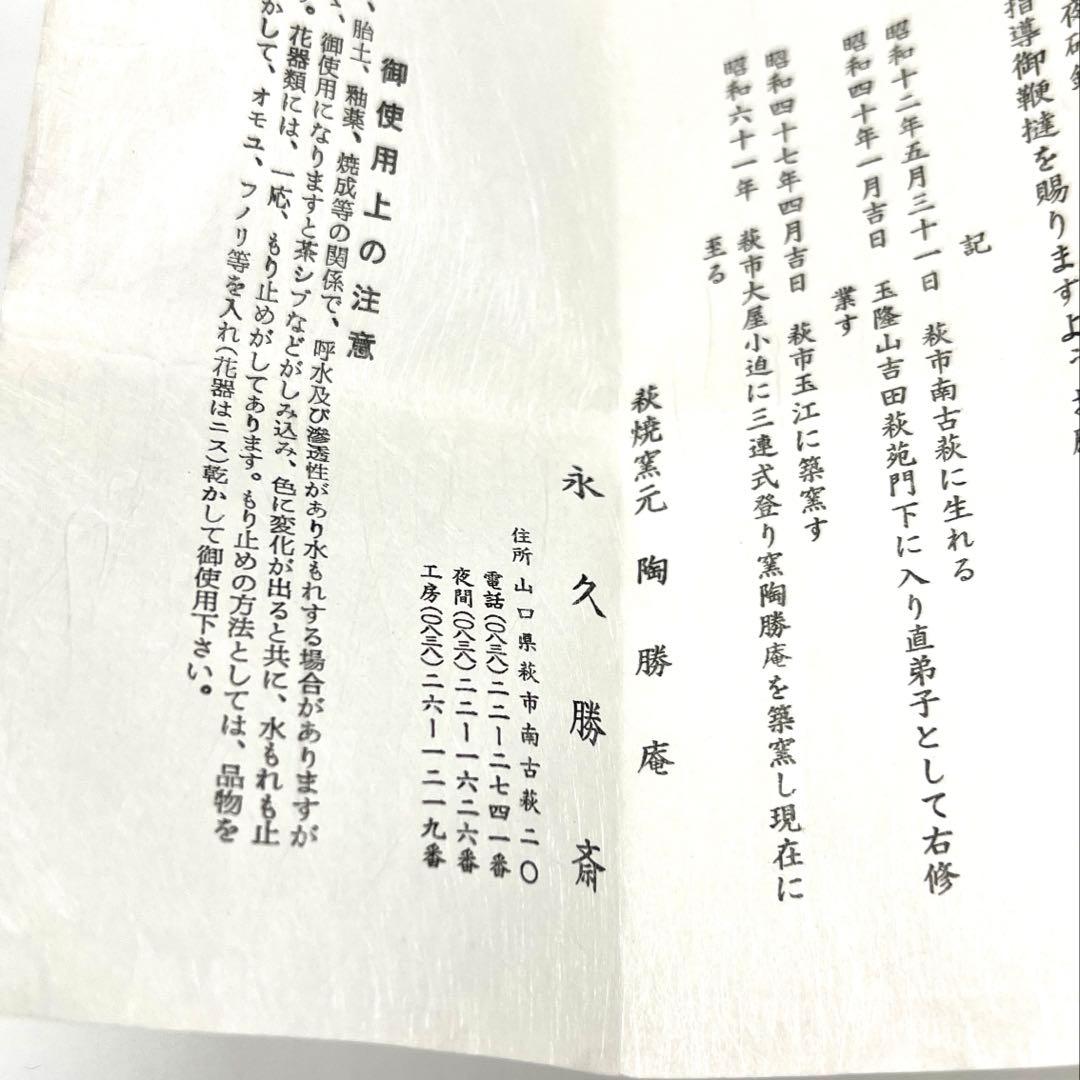 夜研鑽
指導御鞭撻を賜りますよう
記
昭和十二年五月三十一日　萩市南古萩に生れる
昭和四十年一月吉日　玉隆山吉田萩苑門下に入り直弟子として右修
業す
昭和四十七年四月吉日　萩市玉江に築窯す
昭和六十一年　萩市大屋小迫に三連式登り窯陶勝庵を築窯し現在に
至る
萩焼窯元　陶勝庵
永久勝斎
住所　山口県萩市南古萩二〇
電話(〇八三八)二二ー二七四一番
夜間(〇八三八)二二ー一六二六番
工房(〇八三八)二六ー一二一九番
御使用上の注意
、胎土、釉薬、焼成等の関係で、呼水及び滲透性があり水もれする場合がありますが
、御使用になりますと茶シブなどがしみ込み、色に変化が出ると共に、水もれも止
。花器類には、一応、もり止めがしてあります。もり止めの方法としては、品物を
かして、オモユ、フノリ等を入れ(花器はニス)乾かして御使用下さい。